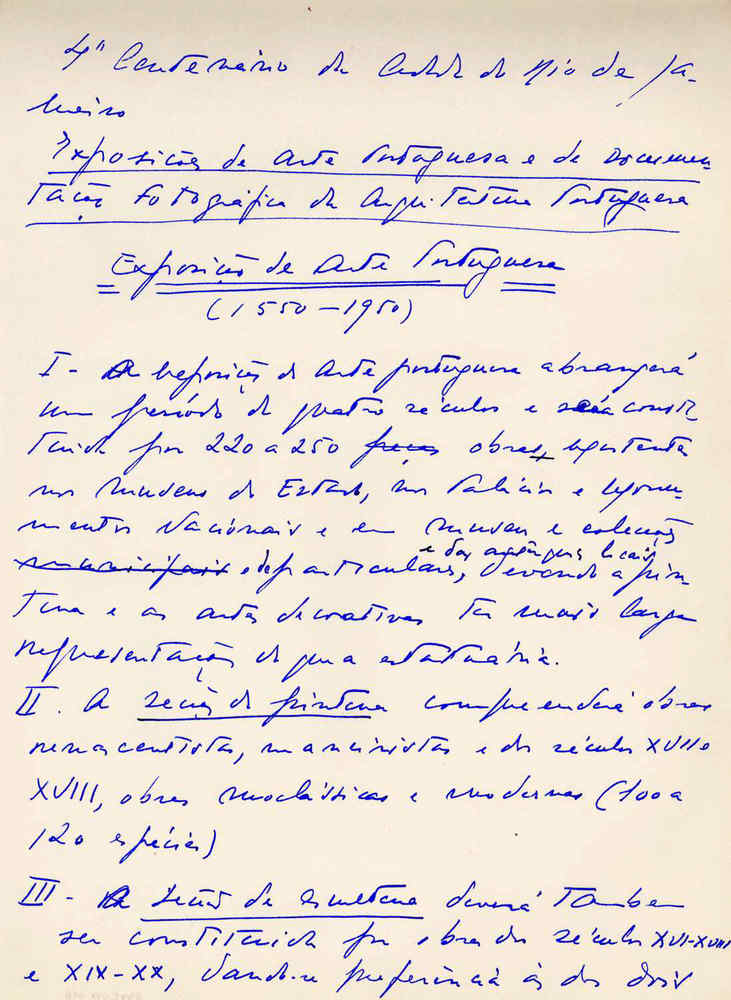 4º Centenário da Cidade do Rio de Ja-
neiro
Exposições de Arte Portuguesa e de Documen-
tação Fotográfica da Arquitectura Portuguesa
Exposição de Arte Portuguesa
(1550-1950)
I - A exposição de Arte portuguesa abrangerá
um período de quatro séculos e será consti-
tuida por 220 a 250 peças obras, existentes
nos Museus do Estado, nos Palácios e Monu-
mentos Nacionais e em museus e colecções
e das autarquias locais
municipais e de particulares, devendo a pin-
tura e as artes decorativas ter mais larga
representação do que a estatuária.
II. A secção de pintura compreenderá obras
renascentistas, maneiristas e dos séculos XVII e
XVIII, obras neoclássicas e modernas (100 a
120 espécies)
III - A secção de escultura deverá tambem
ser constituida por obras dos séculos XVI-XVIII
e XIX-XX, dando-se preferência às dos dois